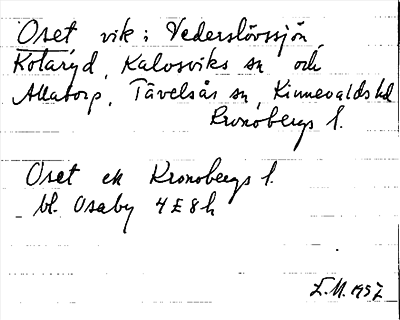 Oset vik i Vederslövssjön,
Kotaryd, Kalvsviks sn och
Allatorp, Tävelsås sn, Kinnevalds hd
Kronobergs l.
Oset ek Kronobergs l.
bl. Osaby 4E8h
L.M. 1957